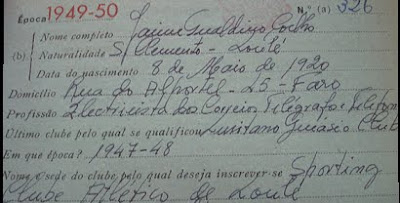 Época 1949-50 N.º (a) 326
Nome completo Jaime Gualdino Coelho
(b) Naturalidade S. Clemente - Loulé
Data do nascimento 8 de Maio de 1920
Domicílio Rua do Alportel - 25 - Faro
Profissão Electricista dos Correios Telegrafos e Telefon
Último clube pelo qual se qualificou Lusitano Ginásio Club
Em que época? 1947-48
Nome e sede do clube pelo qual deseja inscrever-se Sporting
Clube Atlético de Loulé